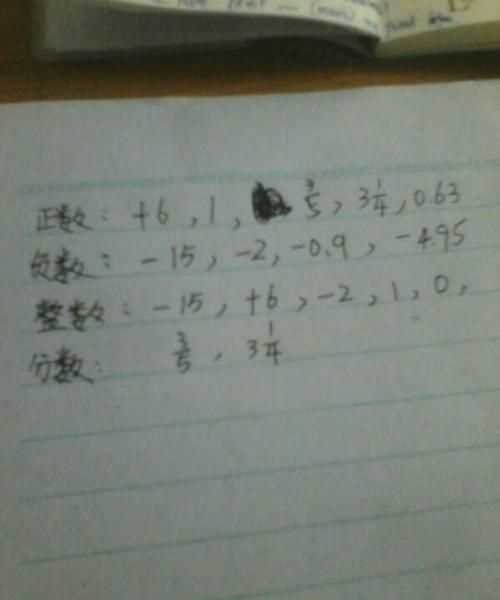 正数: +6, 1, 3/5, 3 1/4, 0.63
负数: -15, -2, -0.9, -4.95
整数: -15, +6, -2, 1, 0,
分数: 3/5, 3 1/4